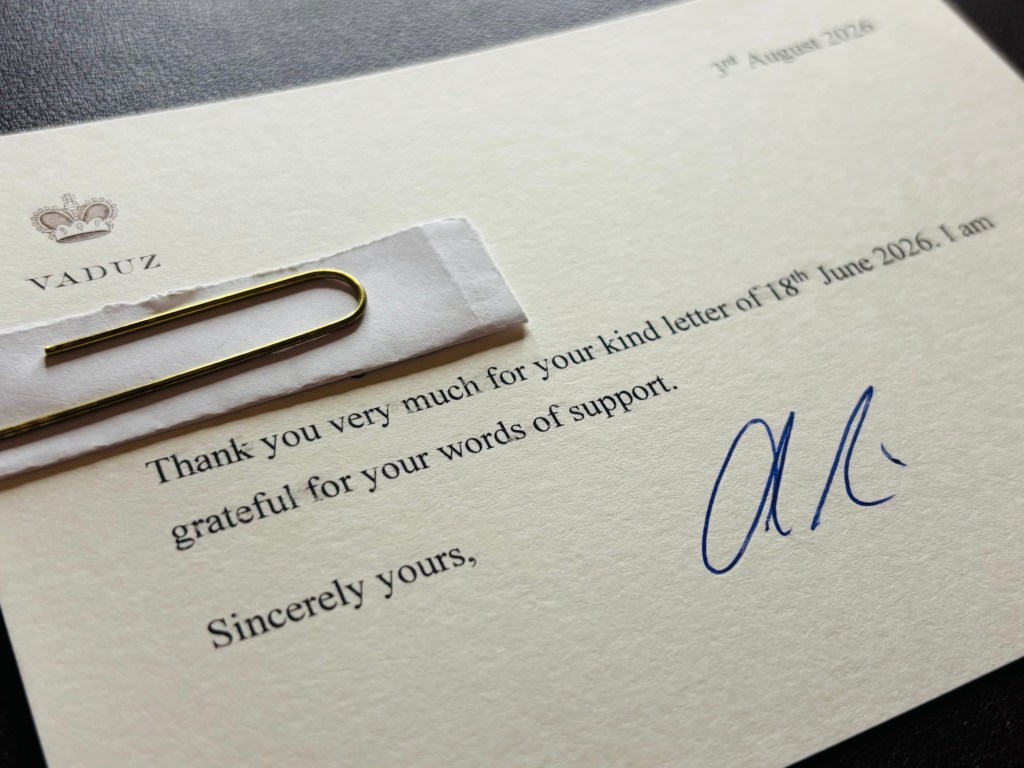 3rd August 2026
VADUZ
Thank you very much for your kind letter of 18th June 2026. I am
grateful for your words of support.
Sincerely yours,